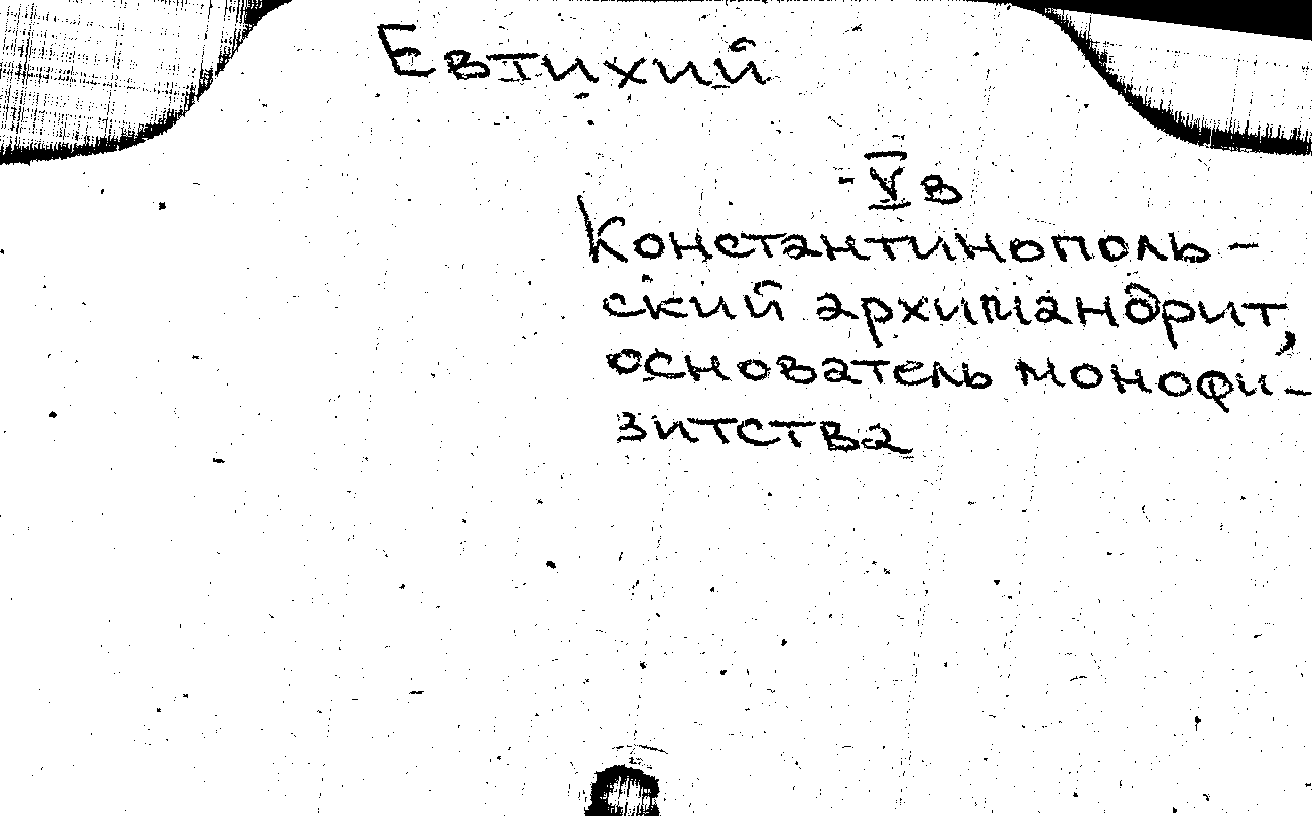 Евтихий
- V в
Константинополь -
ский архимандрит,
основатель монофи -
зитства